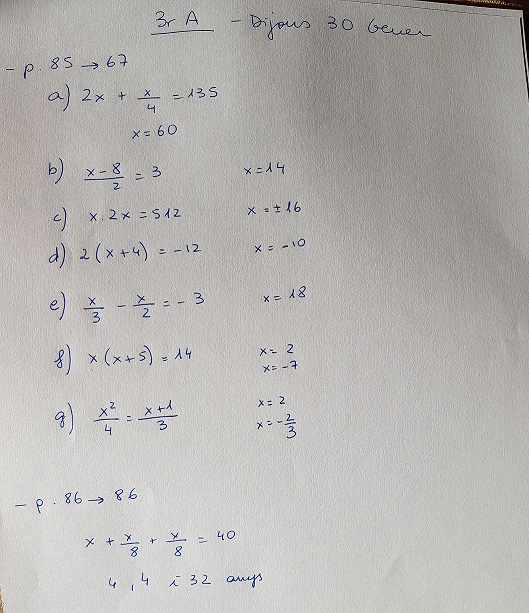 3r A - Dijous 30 Gener
- p. 85 → 67
a) 2x + x/4 = 135
x = 60
b) (x - 8)/2 = 3 x = 14
c) x · 2x = 512 x = ±16
d) 2(x + 4) = -12 x = -10
e) x/3 - x/2 = -3 x = 18
f) x(x + 5) = 14 x = 2
x = -7
g) x²/4 = (x + 1)/3 x = 2
x = -2/3
- p. 86 → 86
x + x/8 + x/8 = 40
4, 4 i 32 anys